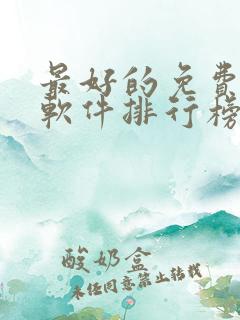 最好的免费
軟件排行榜
酸奶盒
未经同意禁止转载